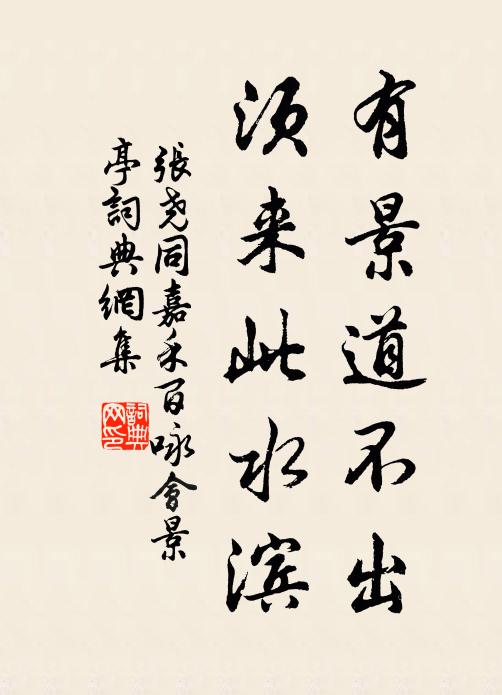 有景道不出
须来此水滨
張尧同嘉禾百咏會景
亭詞典網集
詞典
网印